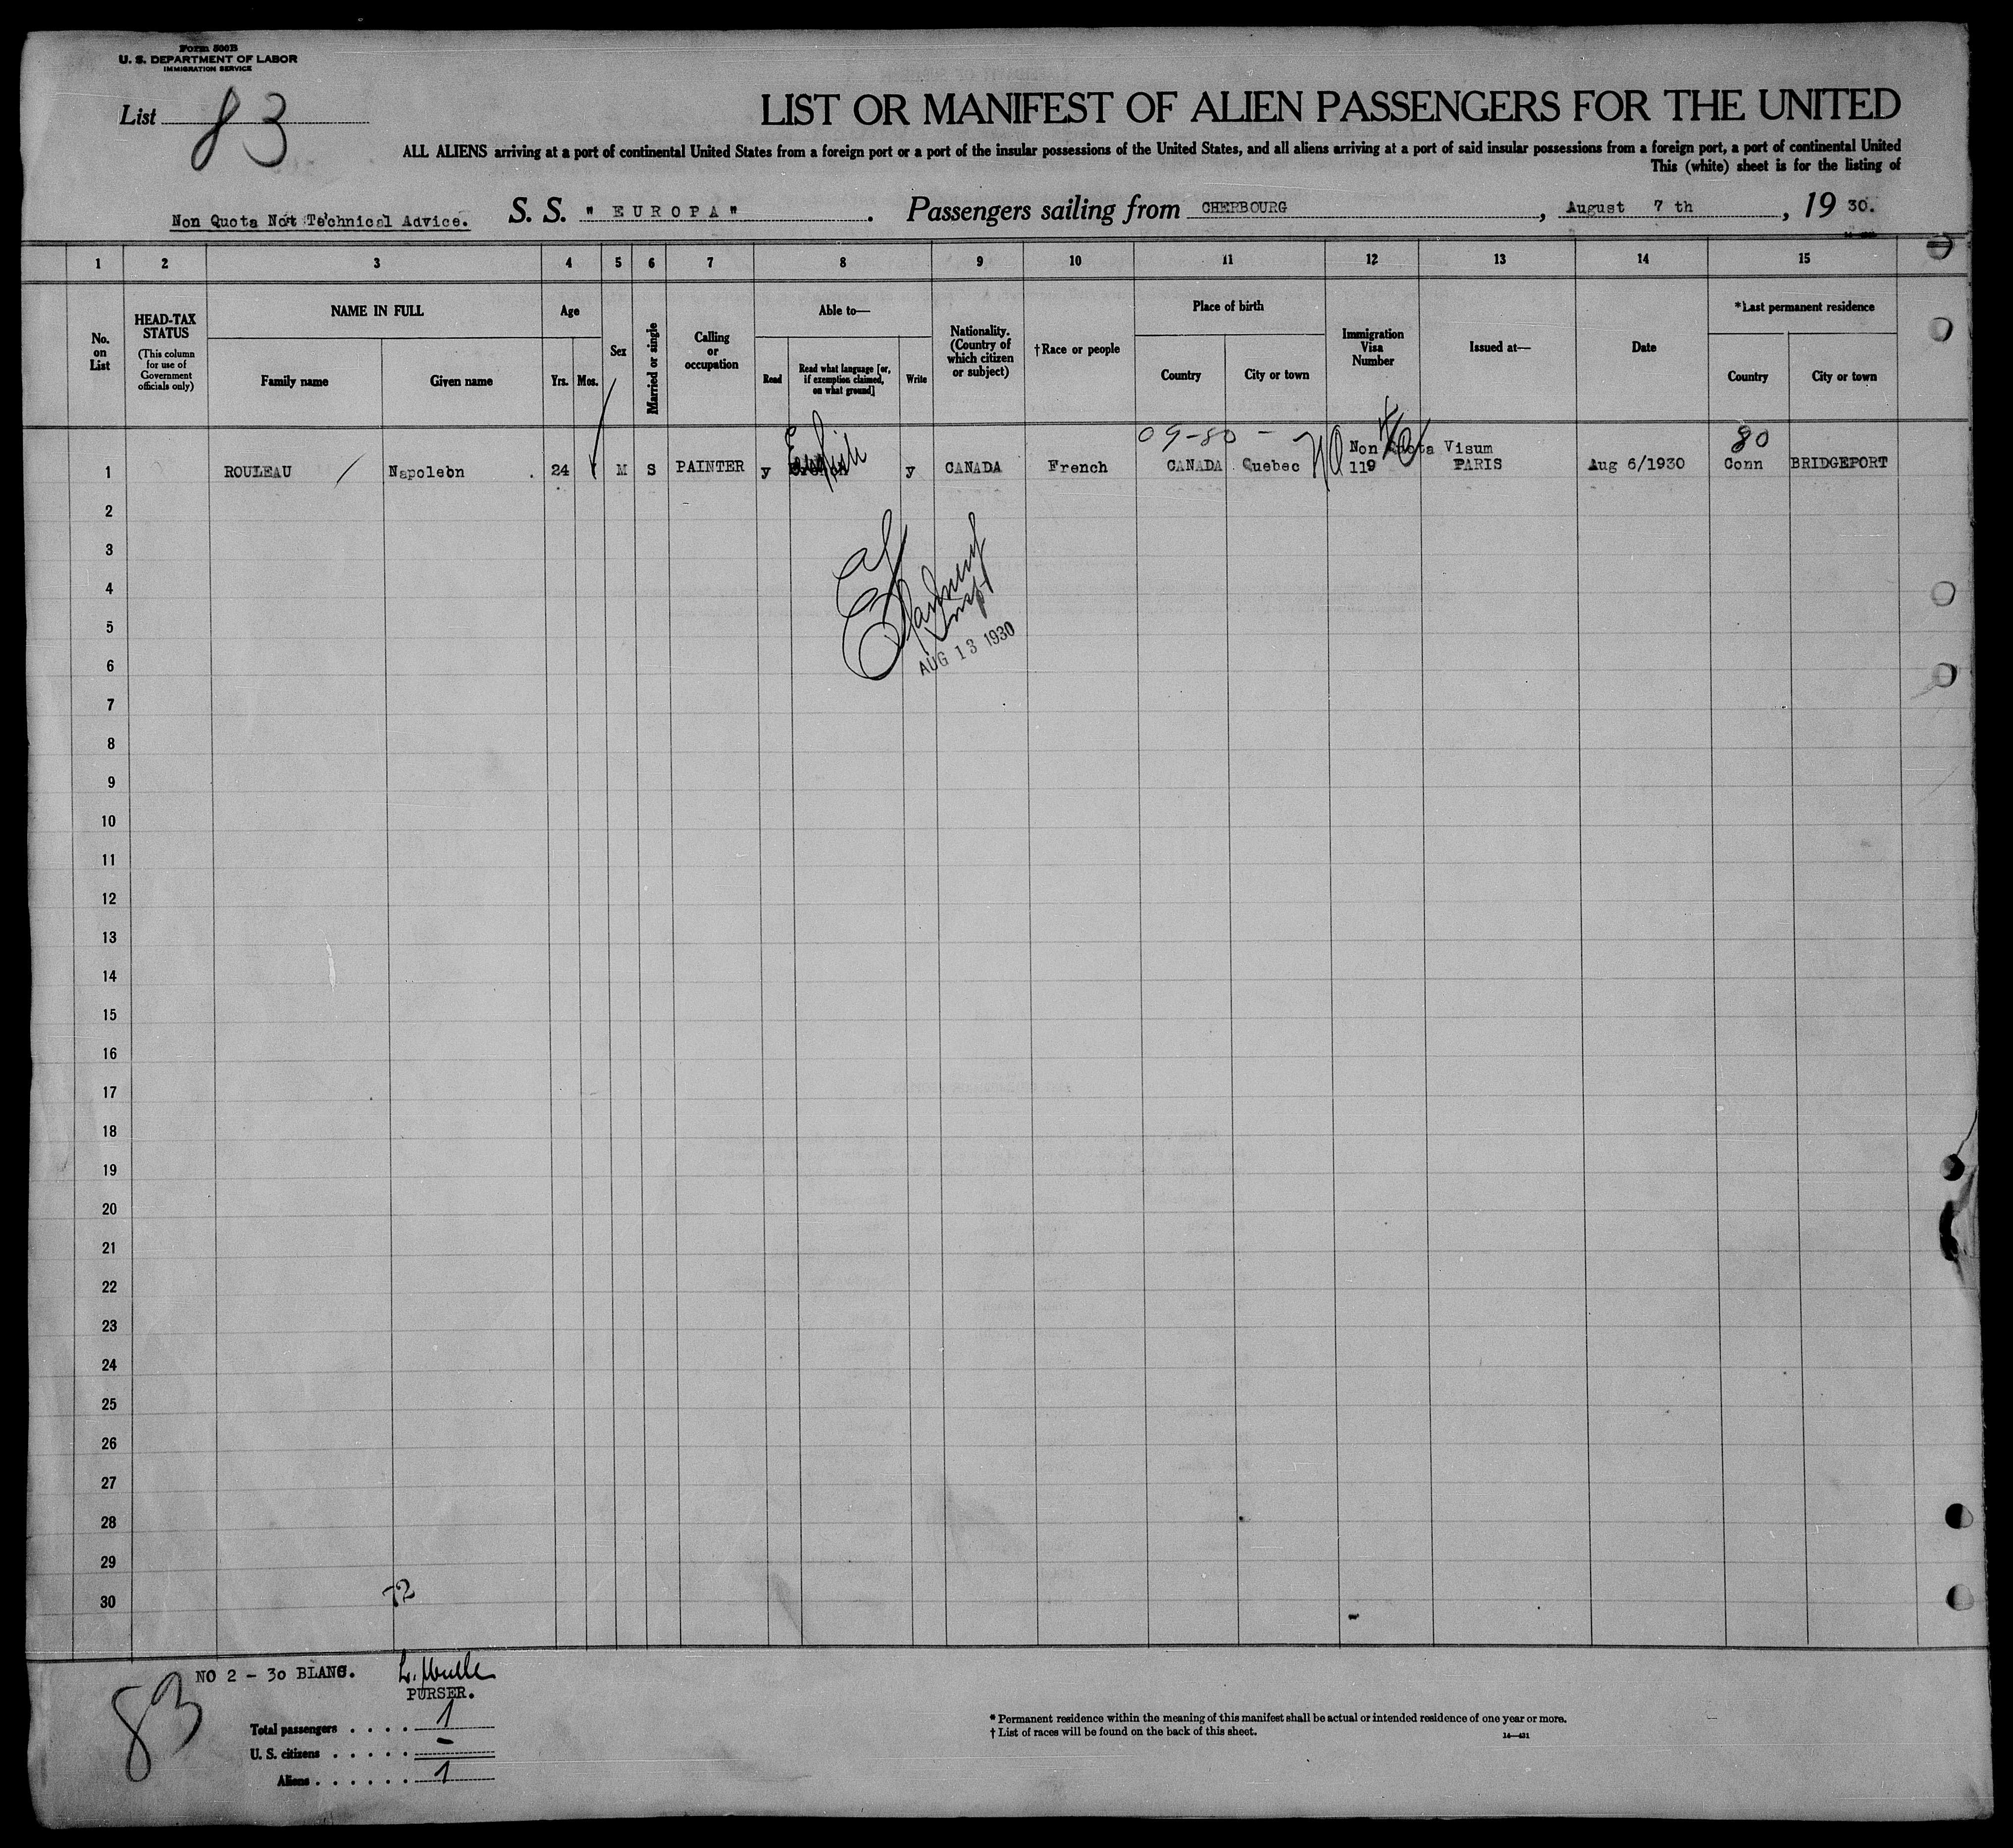 Form 500B
U. S. DEPARTMENT OF LABOR
IMMIGRATION SERVICE
List 83
LIST OR MANIFEST OF ALIEN PASSENGERS FOR THE UNITED
ALL ALIENS arriving at a port of continental United States from a foreign port or a port of the insular possessions of the United States, and all aliens arriving at a port of said insular possessions from a foreign port, a port of continental United
This (white) sheet is for the listing of
Non Quota Not Technical Advice. S. S. " EUROPA " . Passengers sailing from CHERBOURG , August 7 th , 19 30.
1 2 3 4 5 6 7 8 9 10 11 12 13 14 15
No. on List
HEAD-TAX STATUS
(This column for use of Government officials only)
NAME IN FULL
Family name Given name
Age
Yrs. Mos.
Sex
Married or single
Calling or occupation
Able to—
Read
Read what language [or, if exemption claimed, on what ground]
Write
Nationality. (Country of which citizen or subject)
†Race or people
Place of birth
Country City or town
Immigration Visa Number
Issued at—
Date
*Last permanent residence
Country City or town
09-80 - 80
English Non Quota Visum
1 ROULEAU / Napoleon . 24 M S PAINTER y y CANADA French CANADA Quebec 119 PARIS Aug 6/1930 Conn BRIDGEPORT
2
3
4
5
Insp
AUG 13 1930
6
7
8
9
10
11
12
13
14
15
16
17
18
19
20
21
22
23
24
25
26
27
28
29
72
30
NO 2 - 30 BLANG.
PURSER.
83
Total passengers . . . . 1
U. S. citizens . . . . . -
Aliens . . . . . . 1
* Permanent residence within the meaning of this manifest shall be actual or intended residence of one year or more.
† List of races will be found on the back of this sheet.
14—421